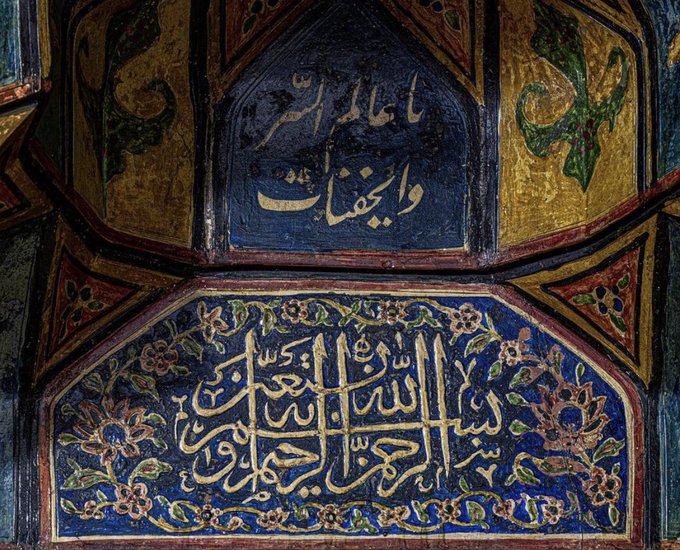 يا عالم السّر
والخفيات
بسم الله الرحمن الرحيم وبه نستعين